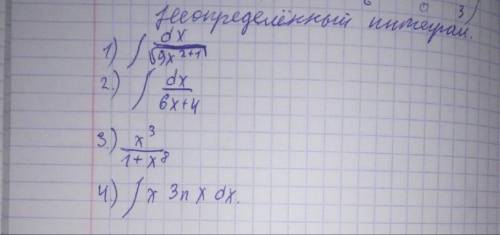 3)
Неопределённый интеграл.
1) ∫ dx / √9x²⁺¹
2.) ∫ dx / 6x+4
3.) x³ / 1+x⁸
4.) ∫ x 3n x dx.